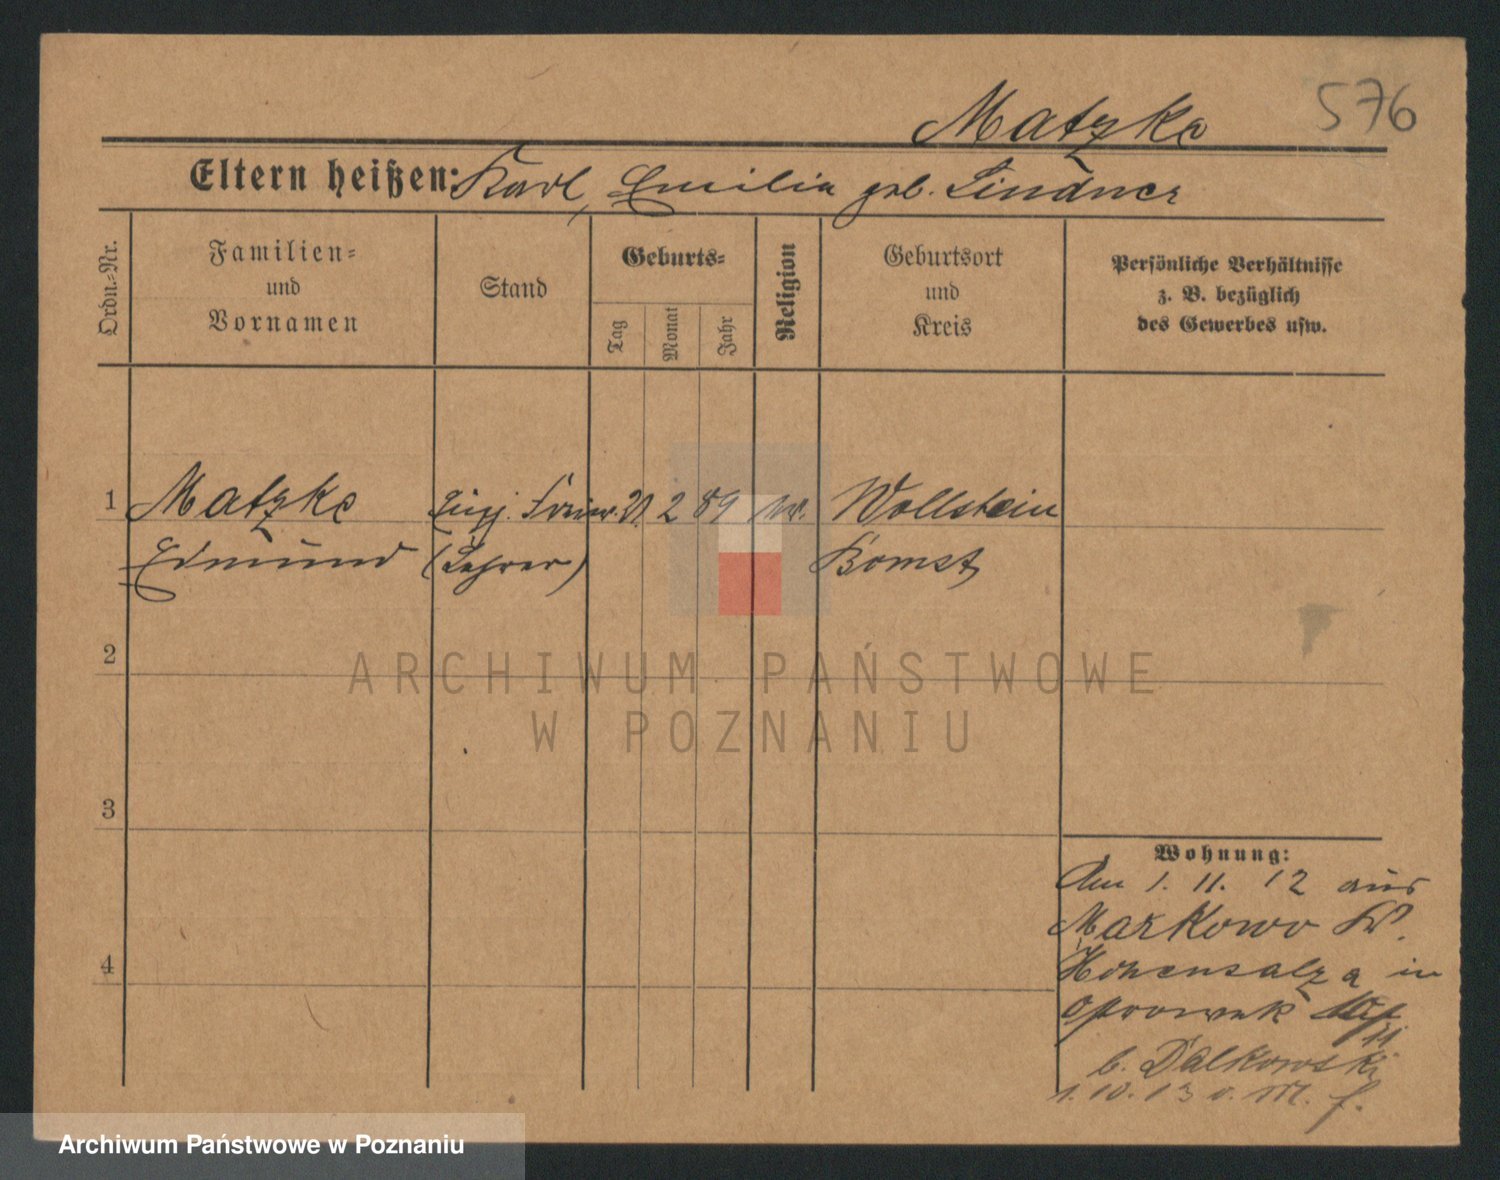 576
Matzke
Eltern heißen: Karl, Emilia geb. Lindner
Ordn.-Nr.
Familien-
und
Vornamen
Stand
Geburts-
Tag
Monat
Jahr
Religion
Geburtsort
und
Kreis
Persönliche Verhältnisse
z. B. bezüglich
des Gewerbes usw.
1 Matzke Einj. Freiw. 2 89 Wollstein
Edmund (Lehrer) Bomst
2
3
4
Wohnung:
Am 1. 11. 12 aus
Markowo K.
Hohensalza in
b. Dalkowski
1. 10. 13 v. M. f.
ARCHIWUM PAŃSTWOWE
W POZNANIU
Archiwum Państwowe w Poznaniu